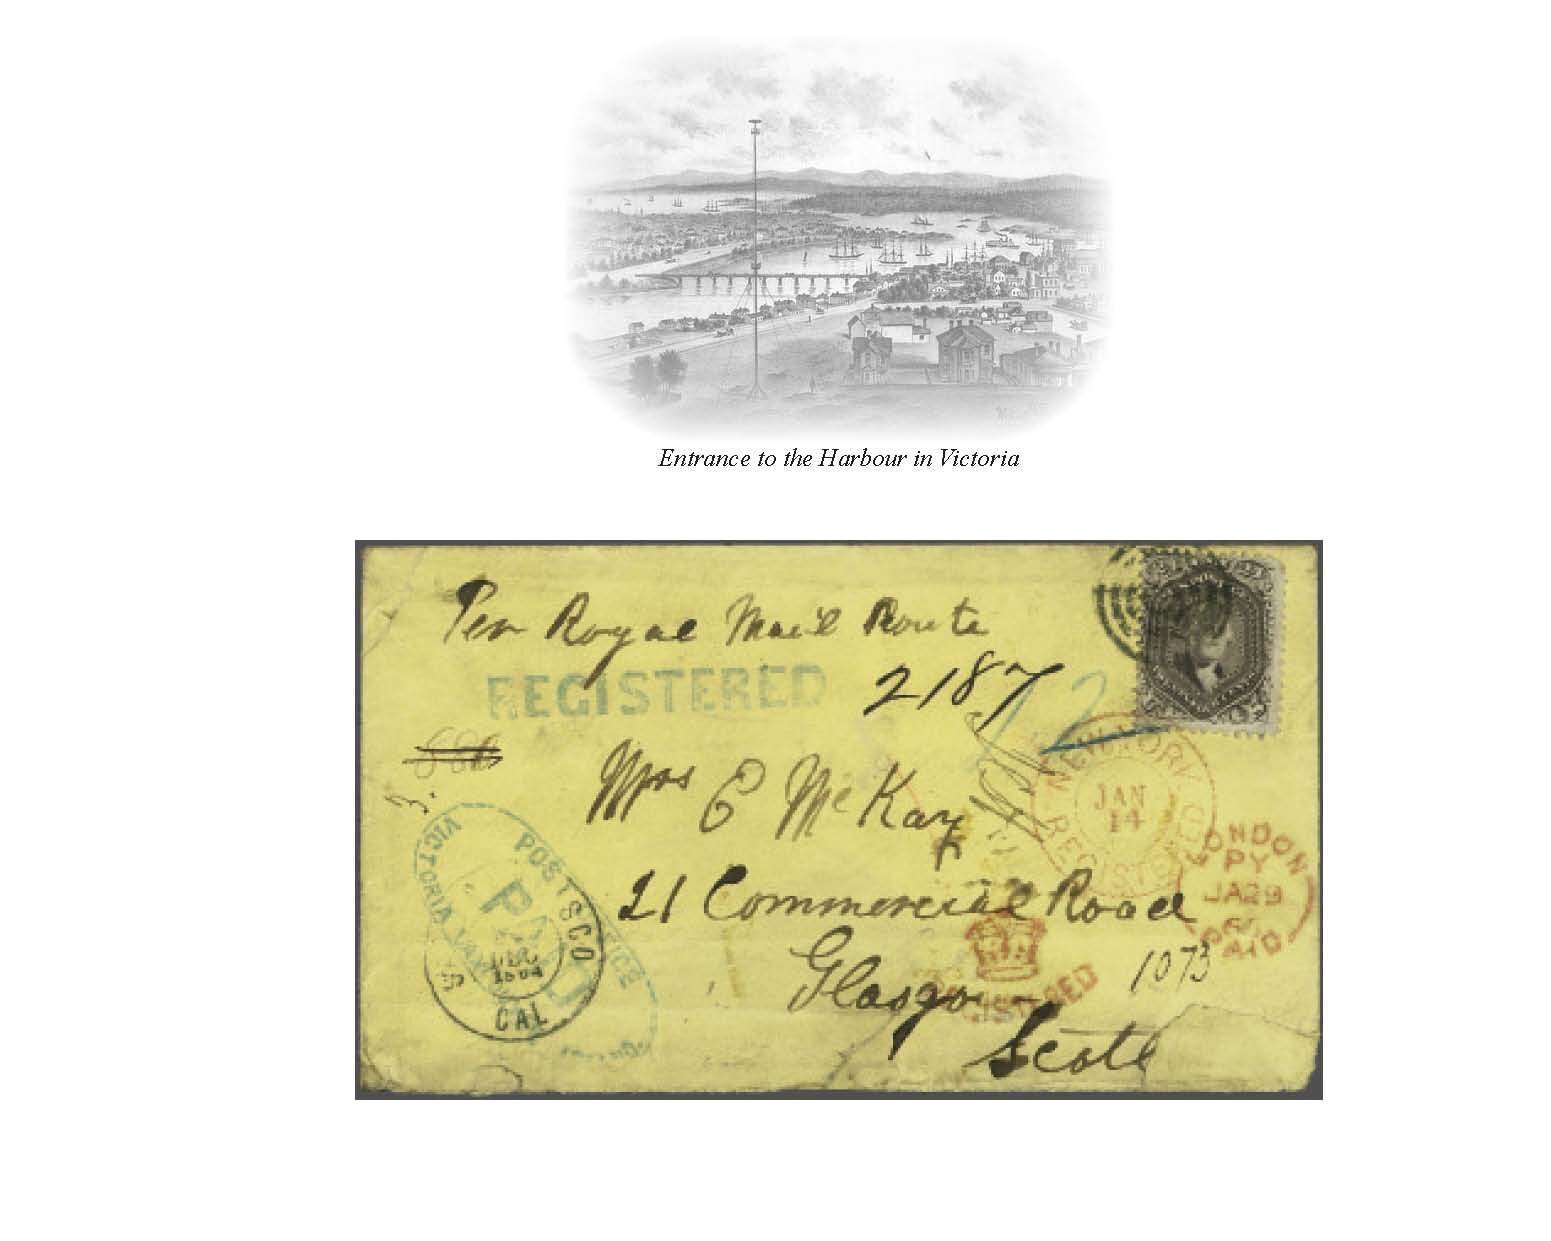 Entrance to the Harbour in Victoria
Per Royal Mail Route
REGISTERED 2187
12
Mrs E McKay
NEW YORK
JAN
14
REGISTERED
LONDON
PY
JA29
65
PAID
21 Commercial Road
POST OFFICE
VICTORIA VAN
PAID
SCO
DEC
1864
CAL
Glasgow
REGISTERED
1073
Scotl